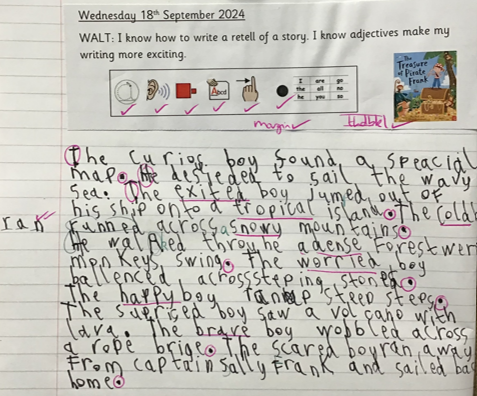 Wednesday 18th September 2024
WALT: I know how to write a retell of a story. I know adjectives make my
writing more exciting.
The
Treasure
of Pirate
Frank
I are go
the all no
he you so
margin
The curios boy found a speacial
map. He desieded to sail the wavy
sea. The exited boy jumed out of
his ship onto a tropical island. The cold
ran
runned across a snowy mountains.
He walked throuhe a dense forest wer
monkeys swing. The worried boy
ballenced across steping stones.
The happy boy ran up steep steps.
The suprised boy saw a volcano with
lava. The brave boy wobbled across
a rope brige. The scared boy ran away
from captain Sally Frank and sailed bac
home.